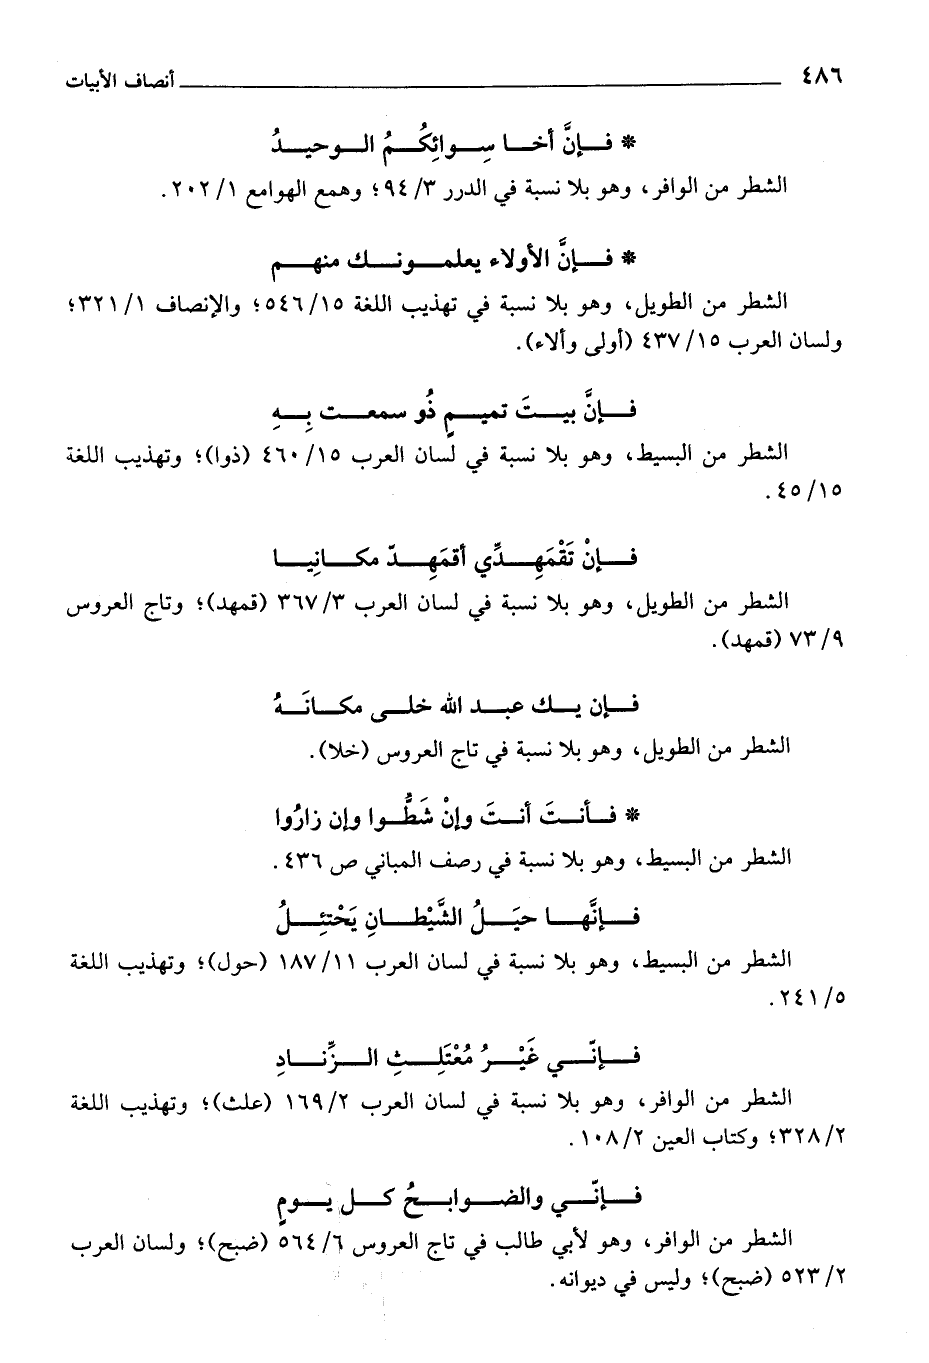 ٤٨٦ أنصاف الأبيات
* فإنَّ أخا سِوائِكُمُ الوحيدُ
الشطر من الوافر، وهو بلا نسبة في الدرر ٣/ ٩٤؛ وهمع الهوامع ١/ ٢٠٢.
* فإنَّ الأولاء يعلمونك منهم
الشطر من الطويل، وهو بلا نسبة في تهذيب اللغة ١٥/ ٥٤٦؛ والإنصاف ١/ ٣٢١؛
ولسان العرب ١٥/ ٤٣٧ (أولى وألاء).
فإنَّ بيتَ تميمٍ ذُو سمعت بِهِ
الشطر من البسيط، وهو بلا نسبة في لسان العرب ١٥/ ٤٦٠ (ذوا)؛ وتهذيب اللغة
١٥/ ٤٥.
فإنْ تَقْمَهِدِّي أقمَهِدّ مكانِيا
الشطر من الطويل، وهو بلا نسبة في لسان العرب ٣/ ٣٦٧ (قمهد)؛ وتاج العروس
٩/ ٧٣ (قمهد).
فإن يك عبد الله خلى مكانَهُ
الشطر من الطويل، وهو بلا نسبة في تاج العروس (خلا).
* فأنتَ أنتَ وإنْ شَطُّوا وإن زارُوا
الشطر من البسيط، وهو بلا نسبة في رصف المباني ص ٤٣٦.
فإنَّها حيَلُ الشَّيْطانِ يَحْتئِلُ
الشطر من البسيط، وهو بلا نسبة في لسان العرب ١١/ ١٨٧ (حول)؛ وتهذيب اللغة
٥/ ٢٤١.
فإنّي غَيْرُ مُعْتَلِثِ الزِّنادِ
الشطر من الوافر، وهو بلا نسبة في لسان العرب ٢/ ١٦٩ (علث)؛ وتهذيب اللغة
٢/ ٣٢٨؛ وكتاب العين ٢/ ١٠٨.
فإنّي والضوابحُ كل يومٍ
الشطر من الوافر، وهو لأبي طالب في تاج العروس ٦/ ٥٦٤ (ضبح)؛ ولسان العرب
٢/ ٥٢٣ (ضبح)؛ وليس في ديوانه.